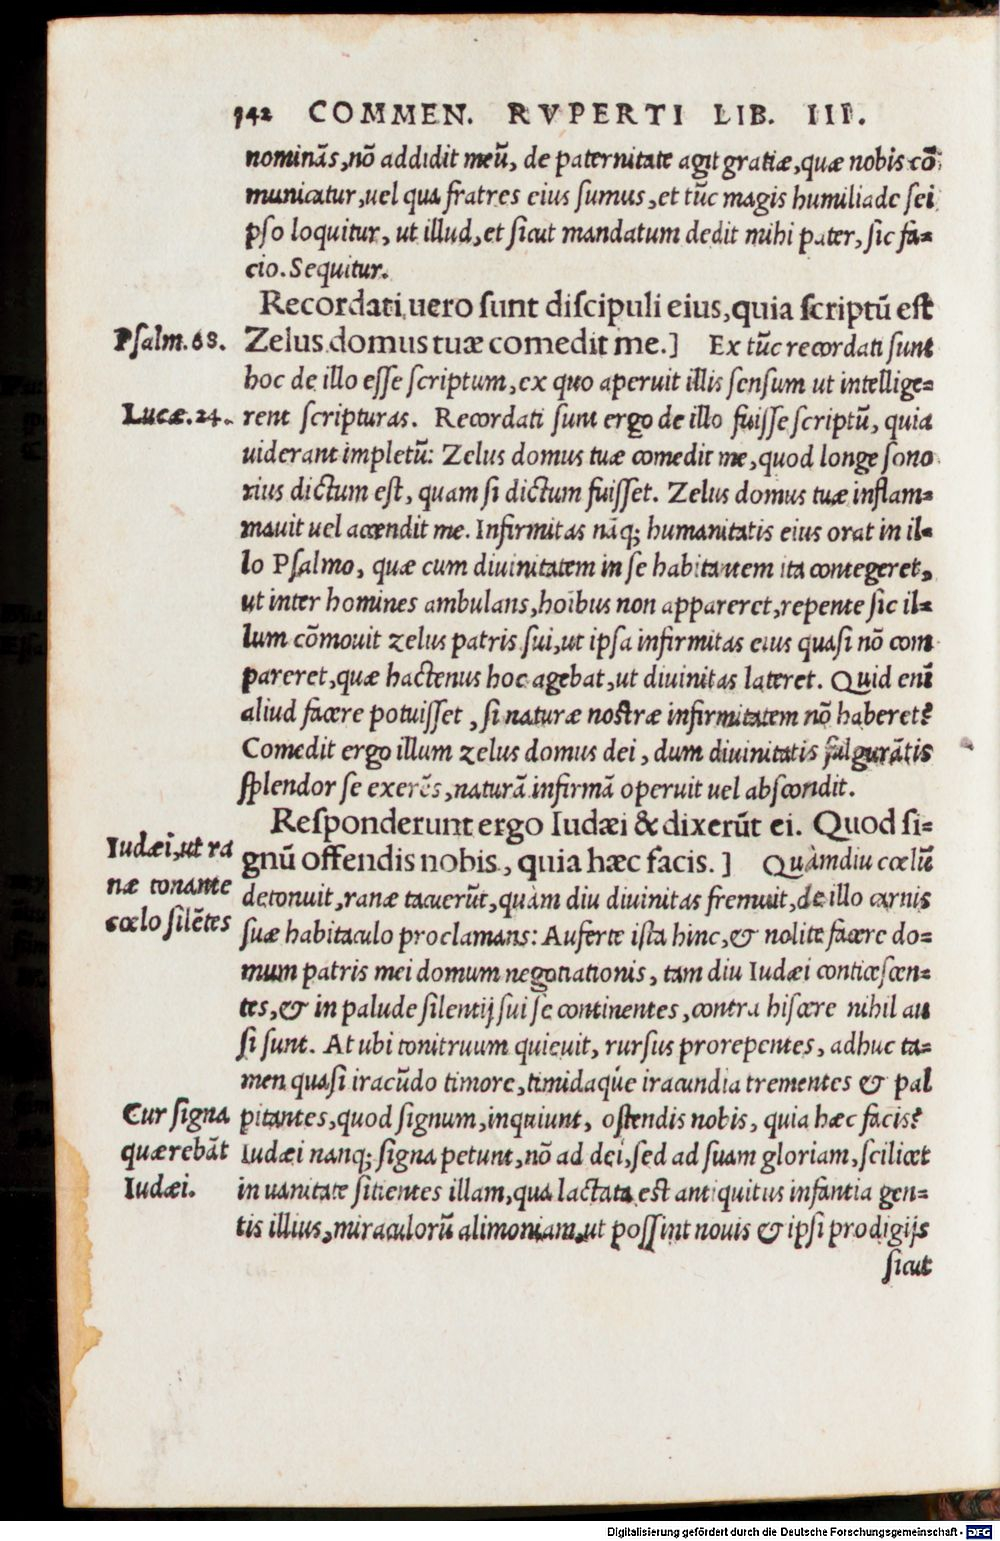 142 COMMEN. RVPERTI LIB. III.
nominãs, nõ addidit meũ, de paternitate agit gratiæ, quæ nobis cõ
municatur, uel qua fratres eius sumus, et tũc magis humiliade sei
pso loquitur, ut illud, et sicut mandatum dedit mihi pater, sic fa=
cio. Sequitur.
Recordati uero sunt discipuli eius, quia scriptũ est
Psalm. 68. Zelus domus tuæ comedit me.] Ex tũc recordati sunt
hoc de illo esse scriptum, ex quo aperuit illis sensum ut intellige=
Lucæ. 24. rent scripturas. Recordati sunt ergo de illo fuisse scriptũ, quia
uiderant impletũ: Zelus domus tuæ comedit me, quod longe sono
rius dictum est, quam si dictum fuisset. Zelus domus tuæ inflam=
mauit uel accendit me. Infirmitas nãq; humanitatis eius orat in il=
lo Psalmo, quæ cum diuinitatem in se habitantem ita contegeret,
ut inter homines ambulans, hoĩbus non appareret, repente sic il=
lum cõmouit zelus patris sui, ut ipsa infirmitas eius quasi nõ com
pareret, quæ hactenus hoc agebat, ut diuinitas lateret. Quid enĩ
aliud facere potuisset, si naturæ nostræ infirmitatem nõ haberet?
Comedit ergo illum zelus domus dei, dum diuinitatis fulgurãtis
splendor se exerẽs, naturã infirmã operuit uel abscondit.
Responderunt ergo Iudæi & dixerũt ei. Quod si=
gnũ offendis nobis, quia hæc facis.] Quàmdiu cœlũ
Iudæi, ut ra
næ tonante
cœlo silẽtes
detonuit, ranæ tacuerũt, quàm diu diuinitas fremuit, de illo carnis
suæ habitaculo proclamans: Auferte ista hinc, & nolite facere do=
mum patris mei domum negotiationis, tam diu Iudæi conticescen=
tes, & in palude silentij sui se continentes, contra hiscere nihil au
si sunt. At ubi tonitruum quieuit, rursus prorepentes, adhuc ta=
men quasi iracũdo timore, timidaq́ue iracundia trementes & pal
Cur signa
quærebãt
Iudæi.
pitantes, quod signum, inquiunt, ostendis nobis, quia hæc facis?
Iudæi nanq; signa petunt, nõ ad dei, sed ad suam gloriam, scilicet
in uanitate sitientes illam, qua lactata est antiquitus infantia gen=
tis illius, miraculorũ alimoniam, ut possint nouis & ipsi prodigijs
sicut
Digitalisierung gefördert durch die Deutsche Forschungsgemeinschaft - DFG